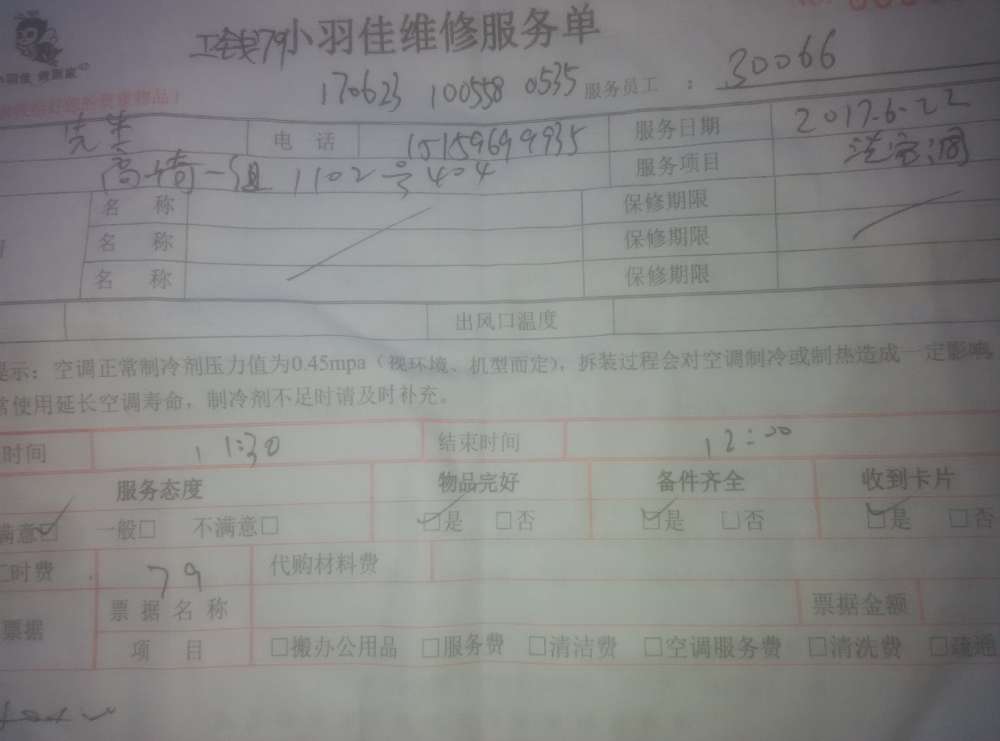 小羽佳维修服务单
79
170623 100558 0535 服务员工 : 30066
先生 电 话 15159699935 服务日期 2017.6.22
高崎一组 1102号404 服务项目 洗空调
名 称 保修期限
名 称 保修期限
名 称 保修期限
出风口温度
提示：空调正常制冷剂压力值为0.45mpa（视环境、机型而定），拆装过程会对空调制冷或制热造成一定影响，
常使用延长空调寿命，制冷剂不足时请及时补充。
时间 11:30 结束时间 12:00
服务态度 物品完好 备件齐全 收到卡片
满意☑ 一般□ 不满意□ ☑是 □否 ☑是 □否 ☑是 □否
工时费 79 代购材料费
票据 票 据 名 称 票据金额
项 目 □搬办公用品 □服务费 □清洁费 □空调服务费 □清洗费 □疏通